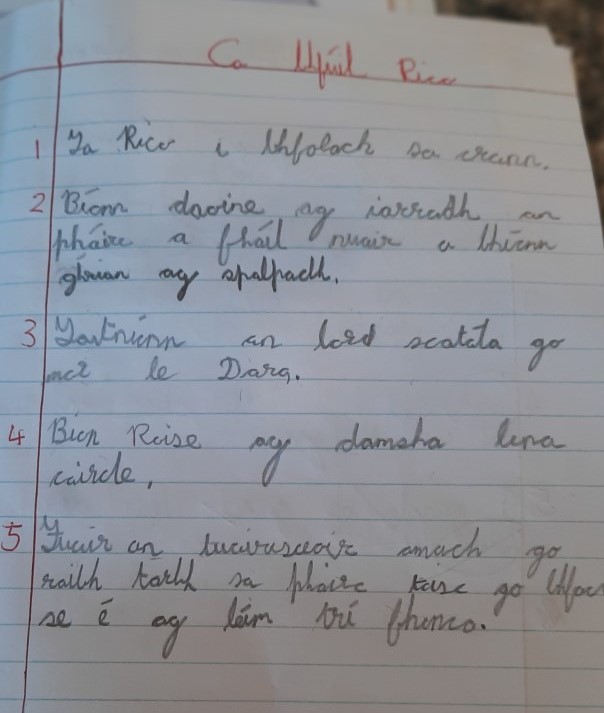 Ca bhfuil Rico
1 Ta Rico i bhfolach sa crann.
2 Bíonn daoine ag iarradh an
pháirc a fháil nuair a bhíonn
grian ag spalpadh.
3 Taitníonn an lord scátála go
mór le Dara.
4 Bíon Róise ag damsha lena
cáirde,
5 Fuair an tuairusceoir amach go
raibh tarbh sa pháirc tar go bhfac
se é ag léim trí fhinneo.